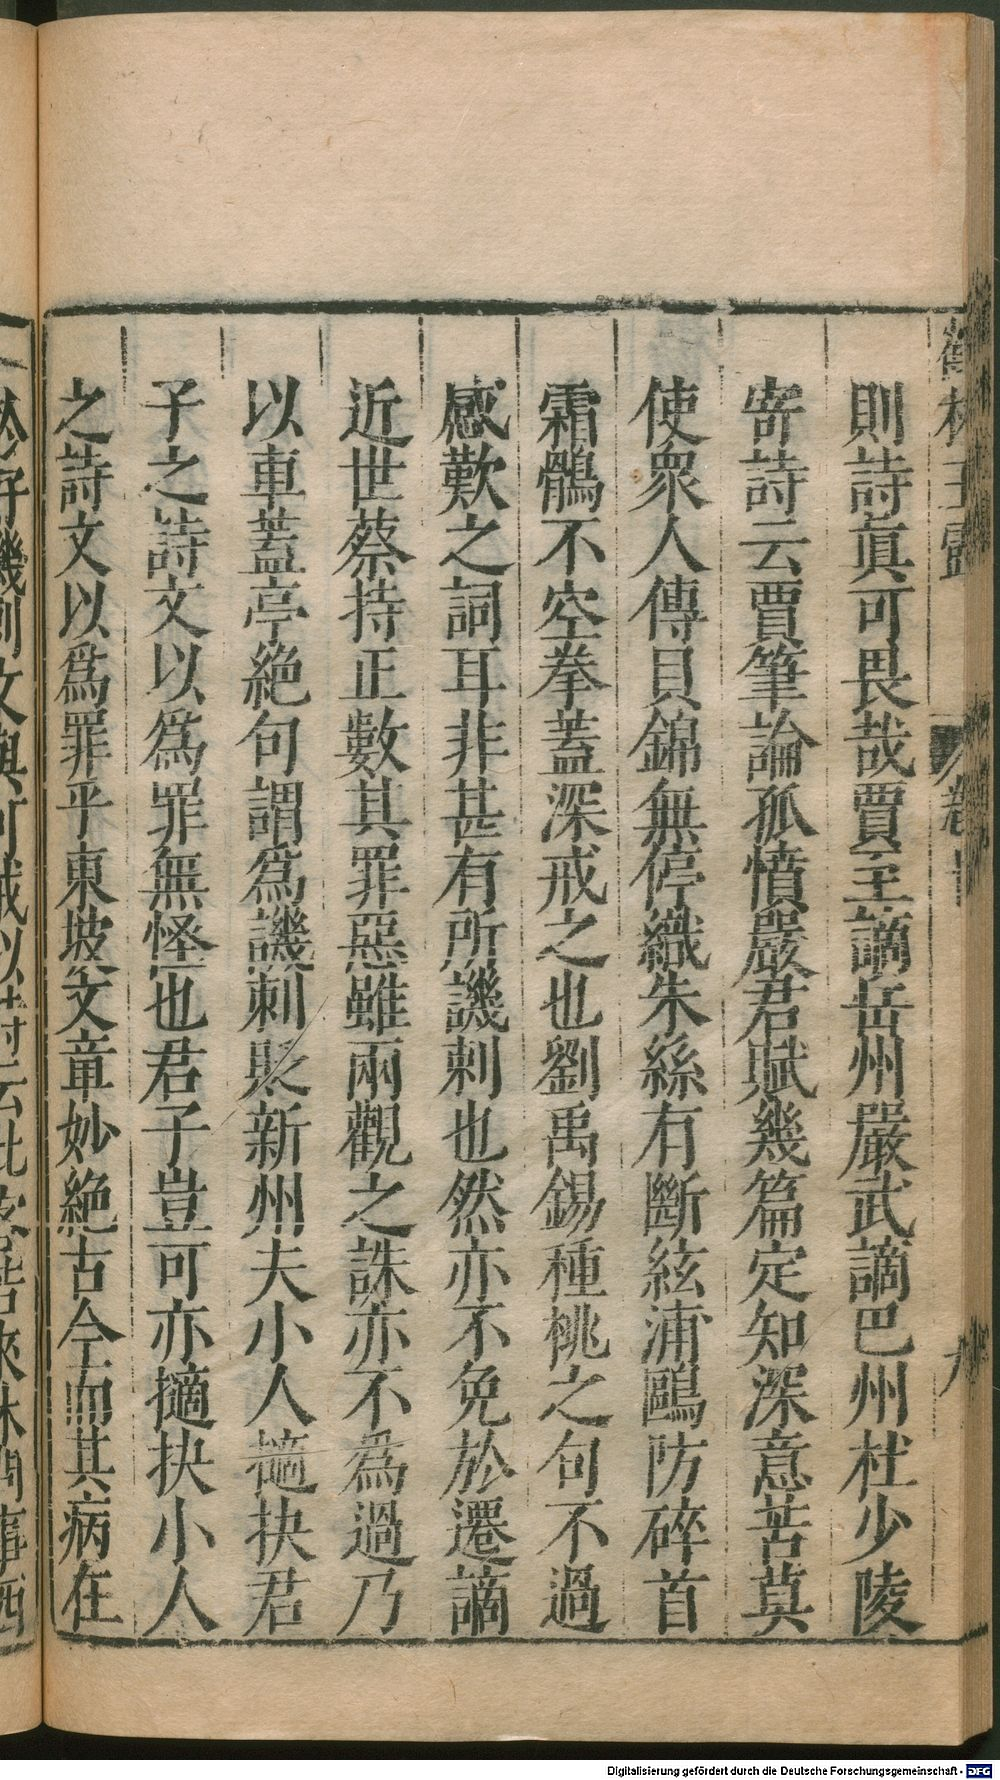 則詩眞可畏哉賈至謫岳州嚴武謫巴州杜少陵
寄詩云賈筆論孤憤嚴君賦幾篇定知深意苦莫
使衆人傳貝錦無停織朱絲有斷絃浦鷗防碎首
霜鶻不空拳蓋深戒之也劉禹錫種桃之句不過
感歎之詞耳非甚有所譏刺也然亦不免於遷謫
近世蔡持正數其罪惡雖兩觀之誅亦不為過乃
以車蓋亭絕句謂爲譏刺貶新州夫小人擿抉君
子之詩文以爲罪無怪也君子豈可亦擿抉小人
之詩文以爲罪乎東坡文章妙絕古今而其病在
Digitalisierung gefördert durch die Deutsche Forschungsgemeinschaft - DFG